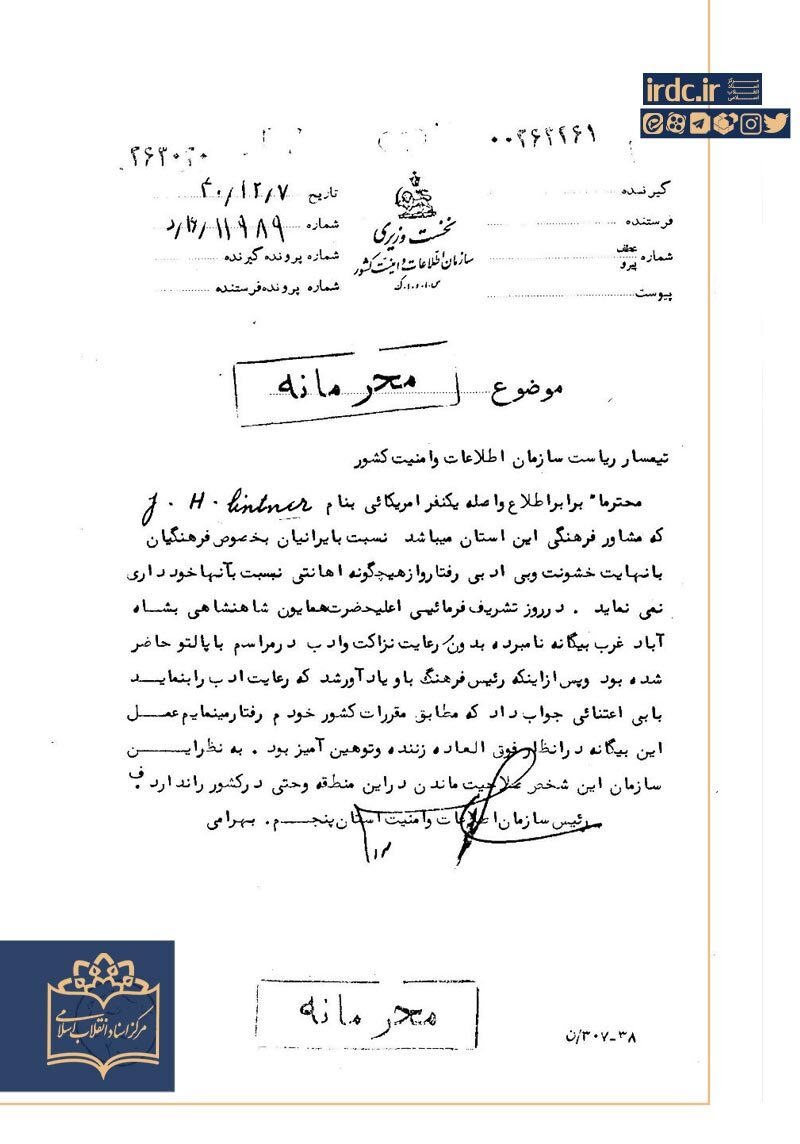 irdc.ir
مرکز
اسناد
انقلاب
اسلامی
۰۰۳۶۲۲۶۱
گیرنده
فرستنده
شماره عطف
پیرو
پیوست
نخست وزیری
سازمان اطلاعات و امنیت کشور
س.ا.و.ا.ک
تاریخ ۴۰/۱۲/۷
شماره ۱۱۹۸۹
شماره پرونده گیرنده
شماره پرونده فرستنده
موضوع
محرمانه
تیمسار ریاست سازمان اطلاعات وامنیت کشور
محترما" برابر اطلاع واصله یکنفر امریکائی بنام J. H. Lintner
که مشاور فرهنگی این استان میباشد نسبت بایرانیان بخصوص فرهنگیان
بانهایت خشونت وبی ادبی رفتار وازهیچگونه اهانتی نسبت بآنها خودداری
نمی نماید . درروز تشریف فرمائیی اعلیحضرت همایون شاهنشاهی بشاه
آباد غرب بیگانه نامبرده بدون رعایت نزاکت وادب درمراسم با پالتو حاضر
شده بود وپس ازاینکه رئیس فرهنگ باو یادآورشد که رعایت ادب رابنماید
بابی اعتنائی جواب داد که مطابق مقررات کشور خودم رفتار مینمایم عمل
این بیگانه درانظار فوق العاده زننده وتوهین آمیز بود . به نظراین
سازمان این شخص صلاحیت ماندن دراین منطقه وحتی درکشور راندارد ف
رئیس سازمان اطلاعات وامنیت استان پنجم . بهرامی
محرمانه
۳۸-۳۰۷/ن
مرکز اسناد انقلاب اسلامی